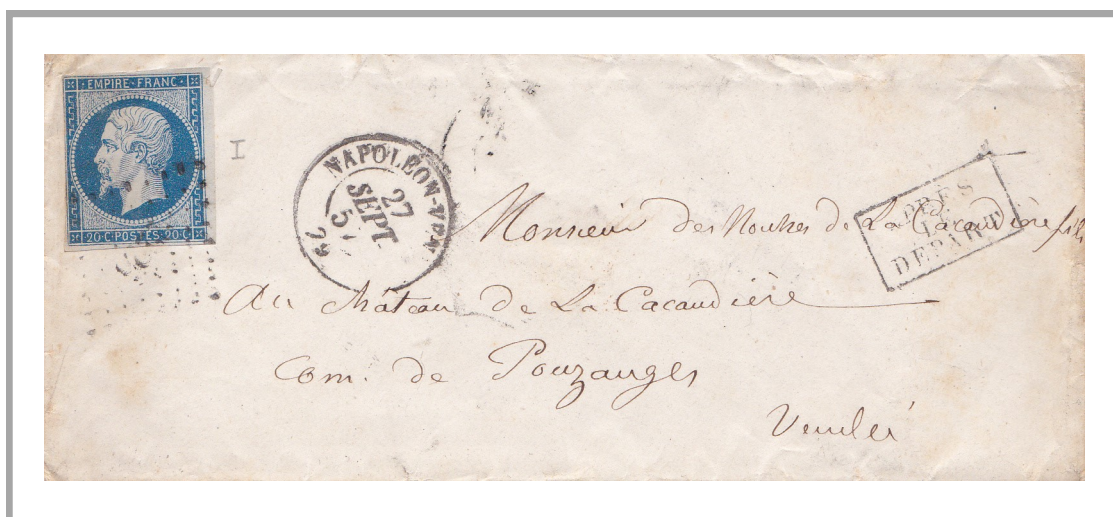 EMPIRE FRANC
20·C·POSTES·20·C
I
NAPOLÉON-V
27
SEPT
5
APRES
LE
DEPART
Monsieur des de La Cacaudière fils
Au château de La Cacaudière
Com. de Pouzauges
Vendée